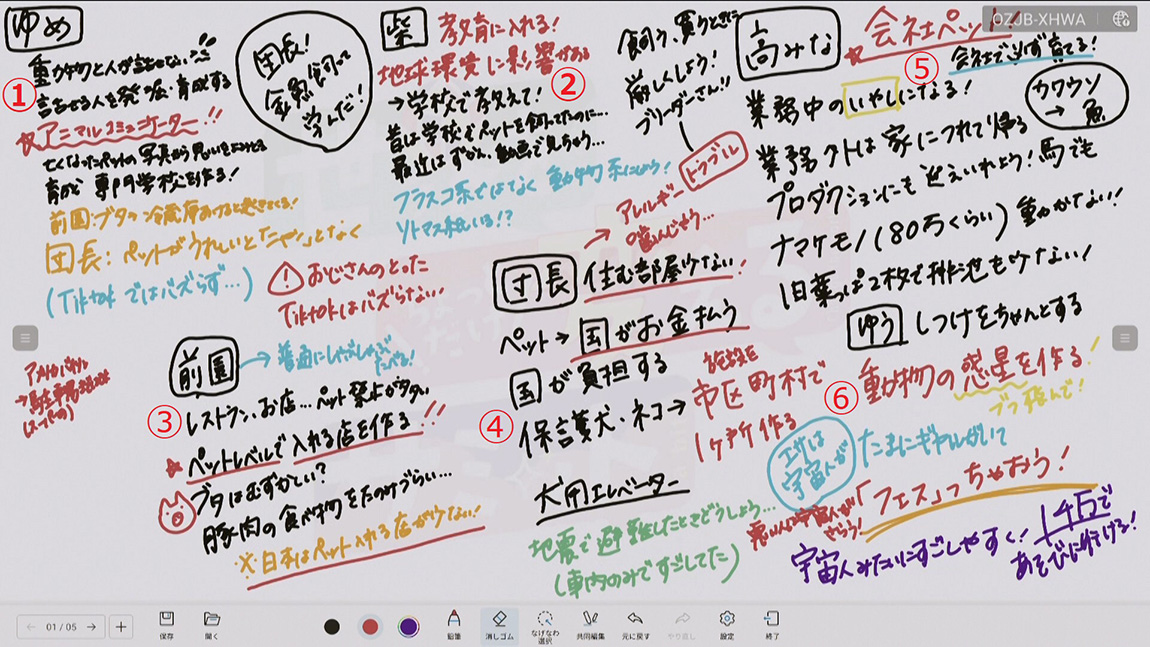 ゆめ
①
動物と人が話せない!!
話せる人を発掘・育成する
☆アニマルコミュニケーター!!
亡くなったペットの写真から思いを
育めて 専門学校を作る!
前園:ブタ→冷蔵庫あけると起きてくる!
団長:ペットがうれしいと「ニャン」となく
(TikTokではバズらず…)
おじさんのとった
TikTokはバズらない!
団長!
全員飼って
学んだ!
柴
教育に入れる!
地球環境に影響がある
②
→学校で教えて!
昔は学校でペットを飼ってたのに…
最近はずかん、動画で見ちゃう…
フラスコ系ではなく 動物系にしよう!
リトマス紙いる!?
飼う、買うときに
厳しくしよう!
ブリーダーさん!!
トラブル
アレルギー
噛んじゃう…
前園
→普通にしゃぶしゃぶたべる!
アメリカ
→駐車場
(スーパーの)
③
レストラン、お店…ペット禁止がタタい
☆ペットレベルで入れる店を作る!!
ブタはむずかしい?
豚肉の食べ物をたのみづらい…
※日本はペット入れる店が少ない!
団長
住む部屋少ない!
ペット→国がお金払う
④
国が負担する
保護犬・ネコ→
施設を
市区町村で
1ヶ所作る
犬用エレベーター
地震で避難したときどうしよう…
(車内のみですごしてた)
高みな
☆会社ペット!!
⑤
会社で必ず育てる!
業務中のいやしになる!
カワウソ
→魚
業務外は家につれて帰る
プロダクションにも迎えいれよう!馬でも
ナマケモノ(80万くらい)動かない!
1日葉っぱ2枚で排泄も少ない!
ゆう
しつけをちゃんとする
⑥
動物の惑星を作る!
エサは
宇宙人が
たまにギャルがいて
「フェス」っちゃおう!
悪い人は宇宙人が
さらう!
宇宙人みたいにすごしやすく!
14日で
あそびに行ける!
OZJB-XHWA
01 / 05
保存
開く
鉛筆
消しゴム
なげなわ
選択
共同編集
元に戻す
やり直し
設定
終了